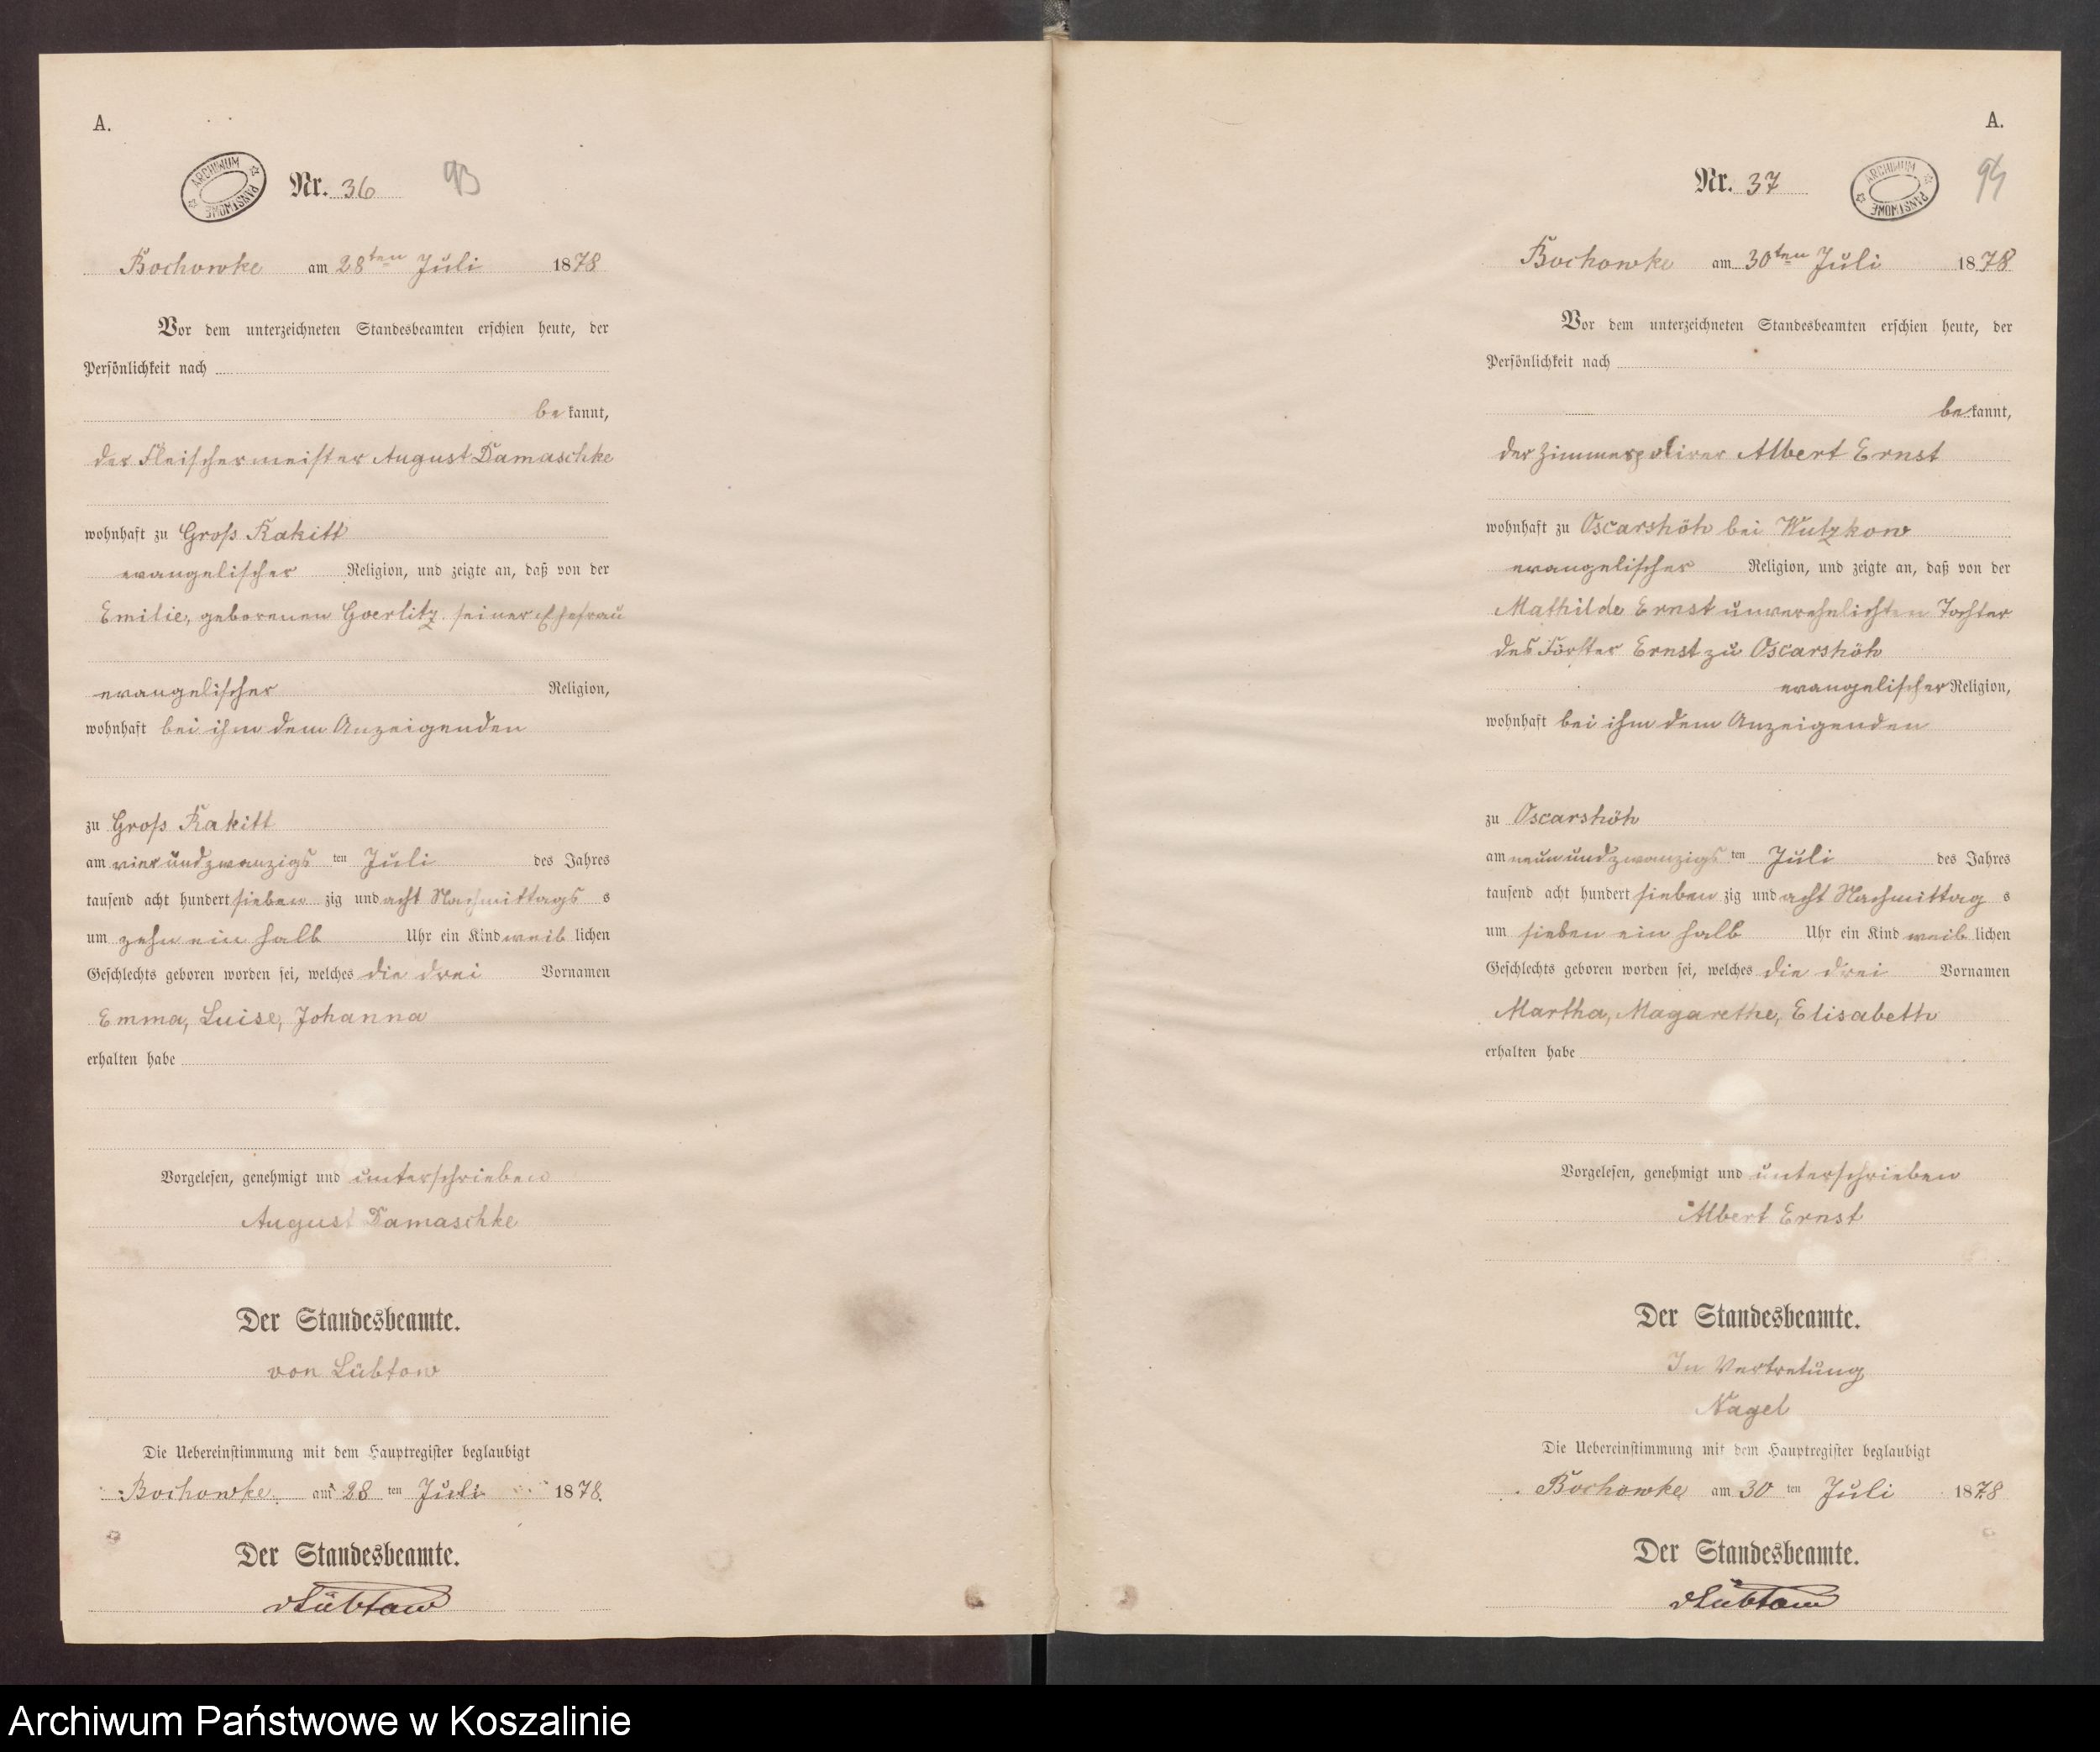 A.
ARCHIWUM PAŃSTWOWE
Nr. 36
93
Bochowke am 28ten Juli 1878
Vor dem unterzeichneten Standesbeamten erschien heute, der
Persönlichkeit nach
bekannt,
der Fleischermeister August Damaschke
wohnhaft zu Groß Rakitt
evangelischer Religion, und zeigte an, daß von der
Emilie, geborenen Goerlitz seiner Ehefrau
evangelischer Religion,
wohnhaft bei ihm dem Anzeigenden
zu Groß Rakitt
am vierundzwanzigsten Juli des Jahres
tausend acht hundert siebenzig und acht Nachmittags s
um zehn ein halb Uhr ein Kind weiblichen
Geschlechts geboren worden sei, welches die drei Vornamen
Emma, Luise, Johanna
erhalten habe
Vorgelesen, genehmigt und unterschrieben
August Damaschke
Der Standesbeamte.
von Lübtow
Die Uebereinstimmung mit dem Hauptregister beglaubigt
Bochowke, am 28 ten Juli 1878.
Der Standesbeamte.
vLübtow
A.
Nr. 37
ARCHIWUM PAŃSTWOWE
94
Bochowke am 30ten Juli 1878
Vor dem unterzeichneten Standesbeamten erschien heute, der
Persönlichkeit nach
bekannt,
der Zimmerpolirer Albert Ernst
wohnhaft zu Oscarshöh bei Wutzkow
evangelischer Religion, und zeigte an, daß von der
Mathilde Ernst unverehelichten Tochter
des Förster Ernst zu Oscarshöh
evangelischer Religion,
wohnhaft bei ihm dem Anzeigenden
zu Oscarshöh
am neunundzwanzigsten Juli des Jahres
tausend acht hundert siebenzig und acht Nachmittag s
um sieben ein halb Uhr ein Kind weiblichen
Geschlechts geboren worden sei, welches die drei Vornamen
Martha, Magarethe, Elisabeth
erhalten habe
Vorgelesen, genehmigt und unterschrieben
Albert Ernst
Der Standesbeamte.
In Vertretung
Nagel
Die Uebereinstimmung mit dem Hauptregister beglaubigt
Bochowke am 30 ten Juli 1878
Der Standesbeamte.
vLübtow
Archiwum Państwowe w Koszalinie